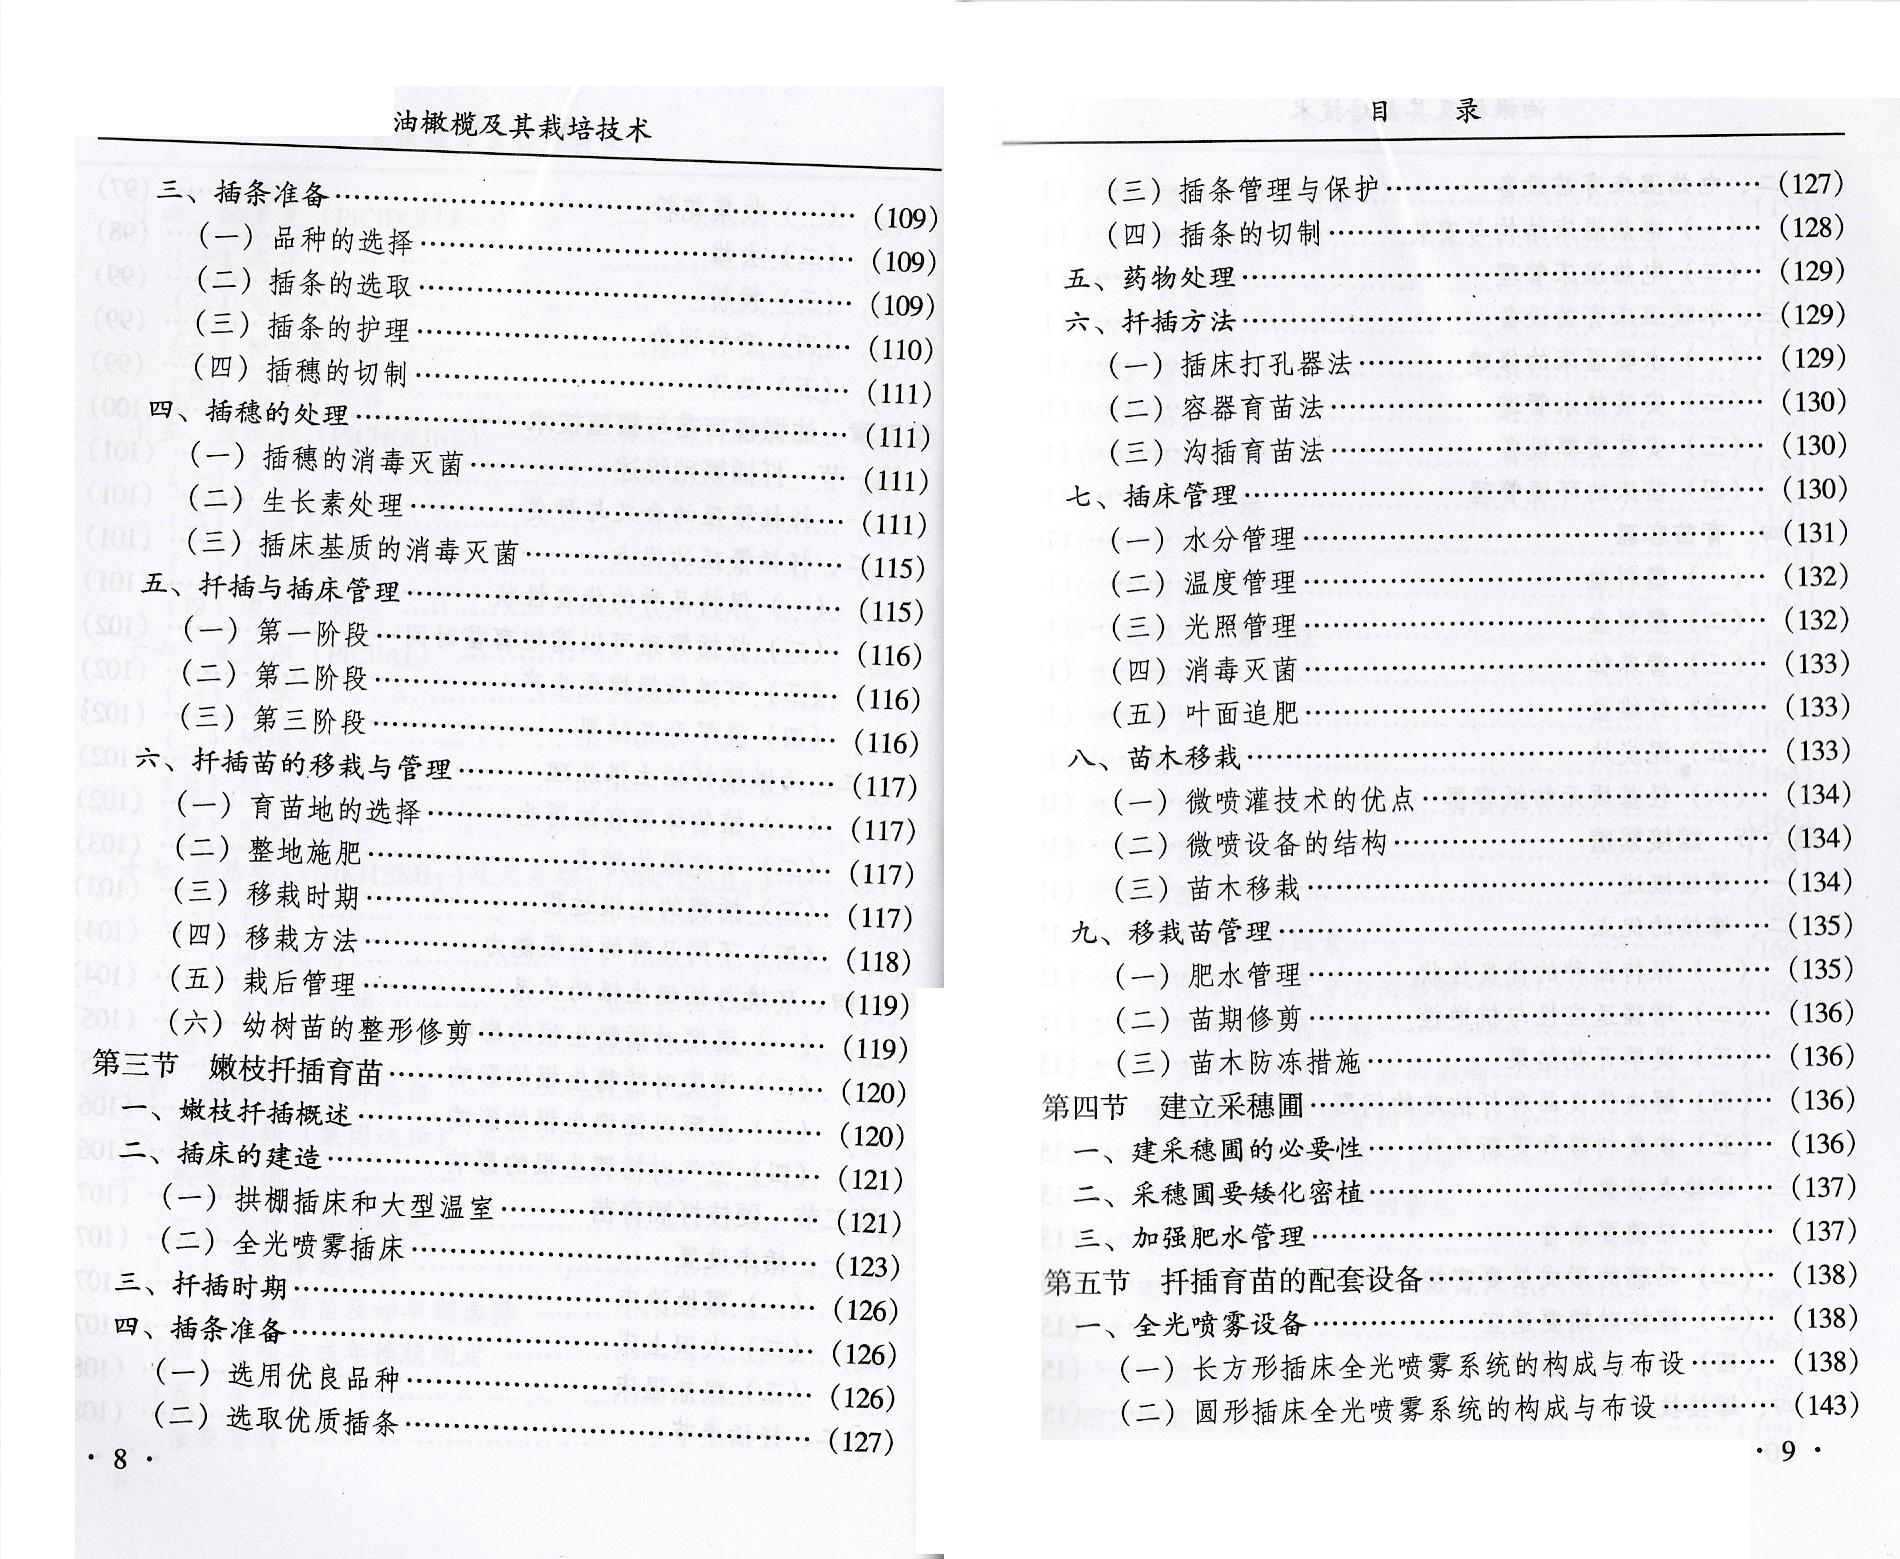 油橄榄及其栽培技术
三、插条准备……(109)
(一)品种的选择……(109)
(二)插条的选取……(109)
(三)插条的护理……(110)
(四)插穗的切制……(111)
四、插穗的处理……(111)
(一)插穗的消毒灭菌……(111)
(二)生长素处理……(111)
(三)插床基质的消毒灭菌……(115)
五、扦插与插床管理……(115)
(一)第一阶段……(116)
(二)第二阶段……(116)
(三)第三阶段……(116)
六、扦插苗的移栽与管理……(117)
(一)育苗地的选择……(117)
(二)整地施肥……(117)
(三)移栽时期……(117)
(四)移栽方法……(118)
(五)栽后管理……(119)
(六)幼树苗的整形修剪……(119)
第三节 嫩枝扦插育苗……(120)
一、嫩枝扦插概述……(120)
二、插床的建造……(121)
(一)拱棚插床和大型温室……(121)
(二)全光喷雾插床……(123)
三、扦插时期……(126)
四、插条准备……(126)
(一)选用优良品种……(126)
(二)选取优质插条……(127)
· 8 ·
目 录
(三)插条管理与保护……(127)
(四)插条的切制……(128)
五、药物处理……(129)
六、扦插方法……(129)
(一)插床打孔器法……(129)
(二)容器育苗法……(130)
(三)沟插育苗法……(130)
七、插床管理……(130)
(一)水分管理……(131)
(二)温度管理……(132)
(三)光照管理……(132)
(四)消毒灭菌……(133)
(五)叶面追肥……(133)
八、苗木移栽……(133)
(一)微喷灌技术的优点……(134)
(二)微喷设备的结构……(134)
(三)苗木移栽……(134)
九、移栽苗管理……(135)
(一)肥水管理……(135)
(二)苗期修剪……(136)
(三)苗木防冻措施……(136)
第四节 建立采穗圃……(136)
一、建采穗圃的必要性……(136)
二、采穗圃要矮化密植……(137)
三、加强肥水管理……(137)
第五节 扦插育苗的配套设备……(138)
一、全光喷雾设备……(138)
(一)长方形插床全光喷雾系统的构成与布设……(138)
(二)圆形插床全光喷雾系统的构成与布设……(143)
· 9 ·